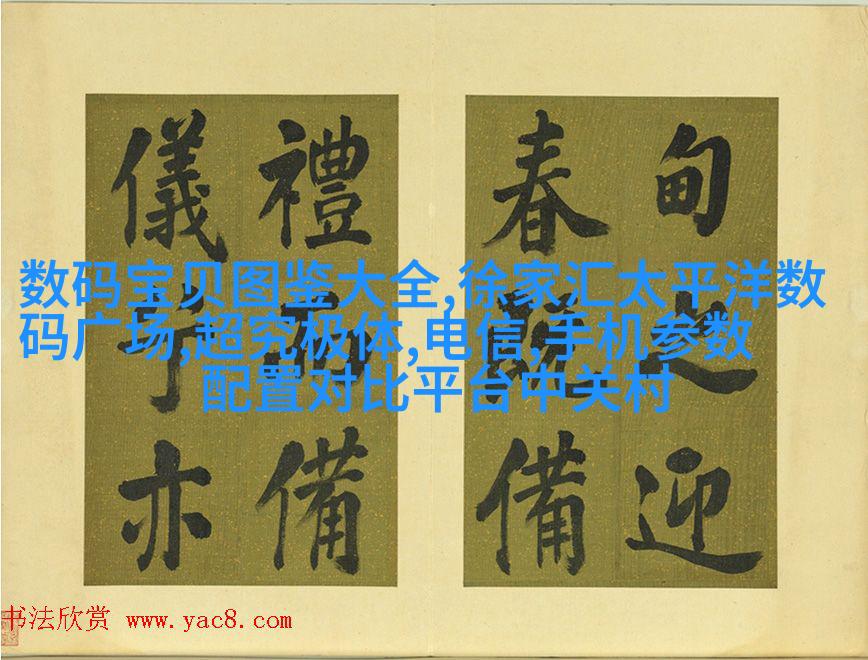 数码宝贝图鉴大全,徐家汇太平洋数
码广场,超究极体,电信,手机参数
配置对比平台中关村
甸之迎
春備
禮備
儀亦
书法欣赏 www.yac8.com